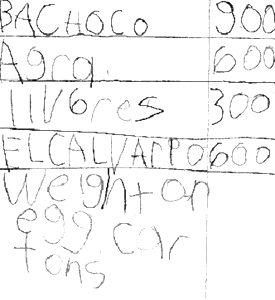 BACHOCO 900
Agra. 600
111V6res 300
ELCALVArPO 600
Weight on
egg car
tons